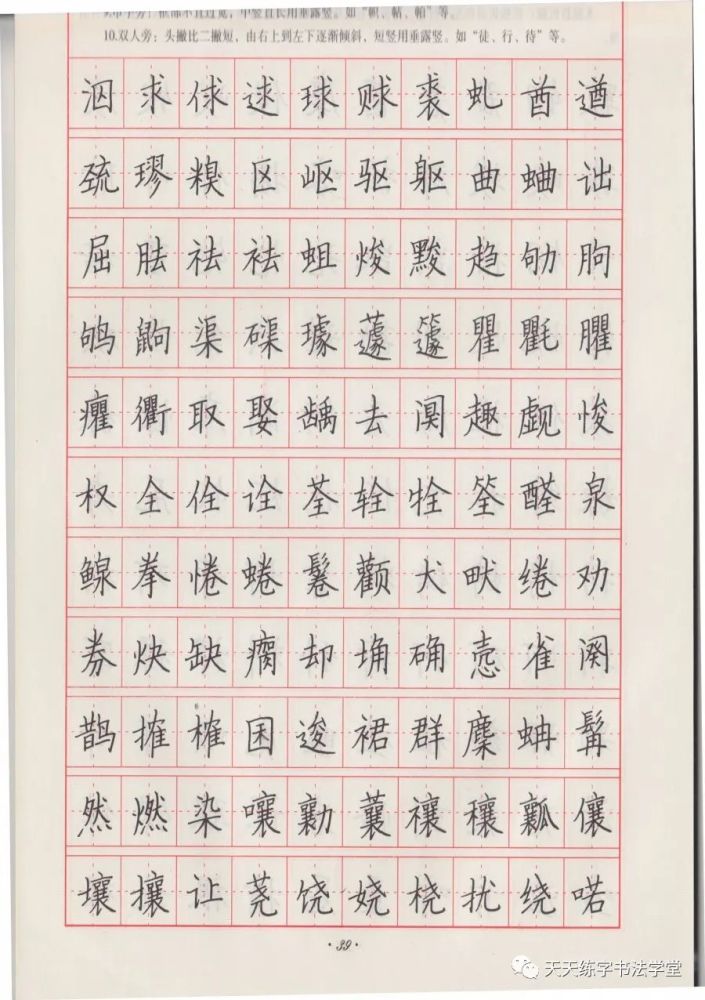 10.双人旁：头撇比二撇短，由右上到左下逐渐倾斜，短竖用垂露竖。如“徒、行、待”等。
泅求俅逑球赇裘虬酋遒
巯璆糗区岖驱躯曲蛐诎
屈胠祛袪蛆焌黢趋劬朐
鸲鼩渠磲璩蘧籧瞿氍臞
癯衢取娶龋去阒趣觑悛
权全佺诠荃辁牷筌醛泉
鳈拳惓蜷鬈颧犬畎绻劝
券炔缺瘸却埆确悫雀阕
鹊搉榷囷逡裙群麇蚺髯
然燃染嚷勷蘘禳穰瓤儴
壤攘让荛饶娆桡扰绕喏
·39·
天天练字书法学堂